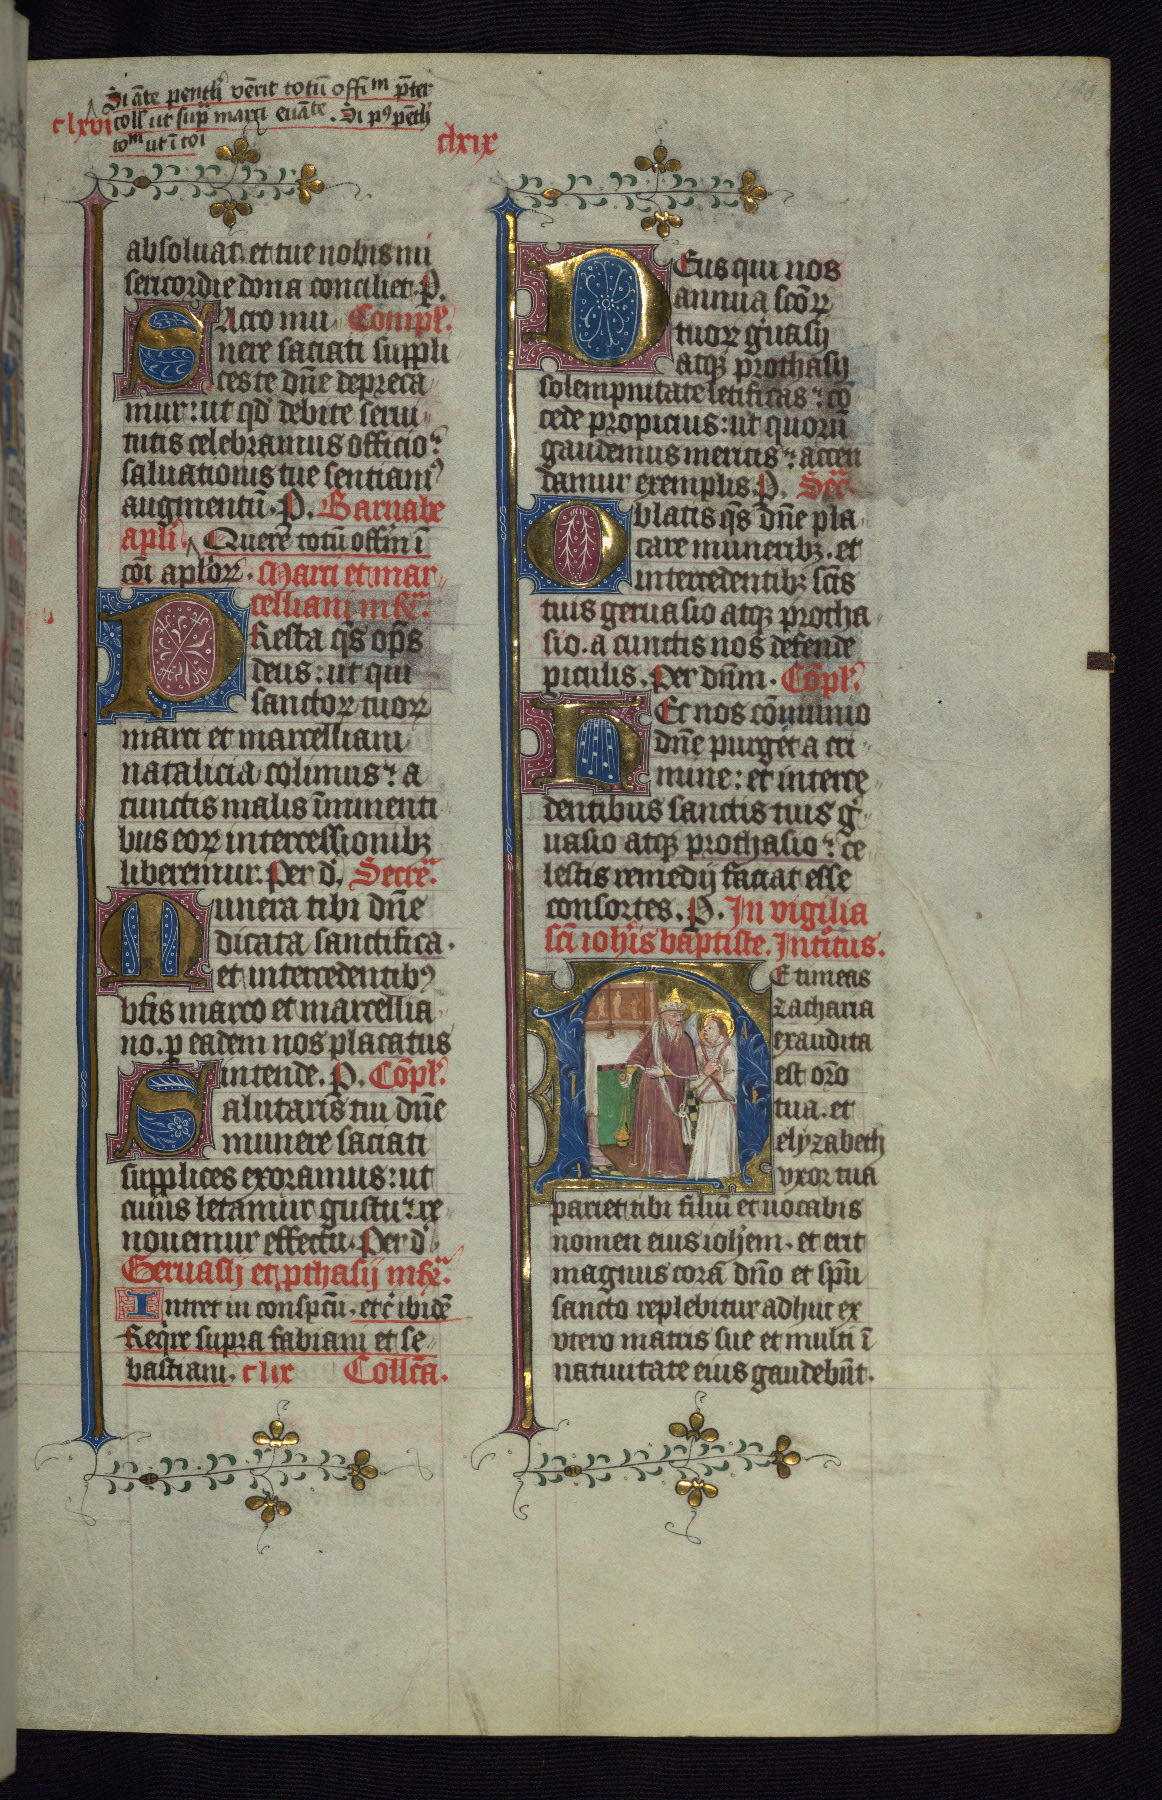 Si āte penth' vēit totū offim p̄ter
coll' ut sup̄ marci euāte. Si p9 pēth'
tom ut ī coi
clxvi
clxix
absoluat. et tue nobis mi
sericordie dona conciliet. P.
Acro mu Compl'.
nere saciati suppli
ces te dn̄e depreca
mur: ut qd' debite serui
tutis celebramus officio:
saluationis tue sentiam9
augmentū. P. Barnabe
apl'i. Quere totū offm̄ ī
cōi apl'oꝝ. Marci et mar
celliani mr̄.
Resta qs̄ op̄s
deus: ut qui
sanctoꝝ tuoꝝ
marci et marcelliani
natalicia colimus: a
cunctis malis īminenti
bus eoꝝ intercessionibꝫ
liberemur. Per d'. Secre.
Munera tibi dn̄e
dicata sanctifica.
et intercedentib9
bt̄is marco et marcellia
no. ꝑ eadem nos placatus
intende. P. Cōpl'.
Salutaris tui dn̄e
munere saciati
supplices exoramus: ut
cuius letamur gustu: re
nouemur effectu. Per d'
Geruasij et ꝓthasij mr̄.
Intret in conspc̄u. etc̄ ibidē
Reqͥre supra fabiani et se
bastiani. clix Coll'cā.
DEus qui nos
annua sc̄oꝝ
tuoꝝ g'uasij
atqꝫ prothasij
solempnitate letificas: cō
cede propicius: ut quorū
gaudemus meritis: accen
damur exemplis. P. Sec̄.
Oblatis qs̄ dn̄e pla
care muneribꝫ. et
intercedentibꝫ sc̄is
tuis geruasio atqꝫ protha
sio. a cunctis nos defende
ꝑiculis. Per dn̄m. Cōpl'.
HEc nos cōmunio
dn̄e purget a cri
mine: et interce
dentibus sanctis tuis g'
uasio atqꝫ prothasio: ce
lestis remedij faciat esse
consortes. P. In vigilia
sc̄i ioh'is baptiste. Introitus.
NE timeas
zacharia
exaudita
est or̄o
tua. et
elyzabeth
vxor tua
pariet tibi filiū et vocabis
nomen eius ioh'em. et erit
magnus corā dn̄o et sp̄u
sancto replebitur adhuc ex
vtero matris sue et multi ī
natiuitate eius gaudebūt.